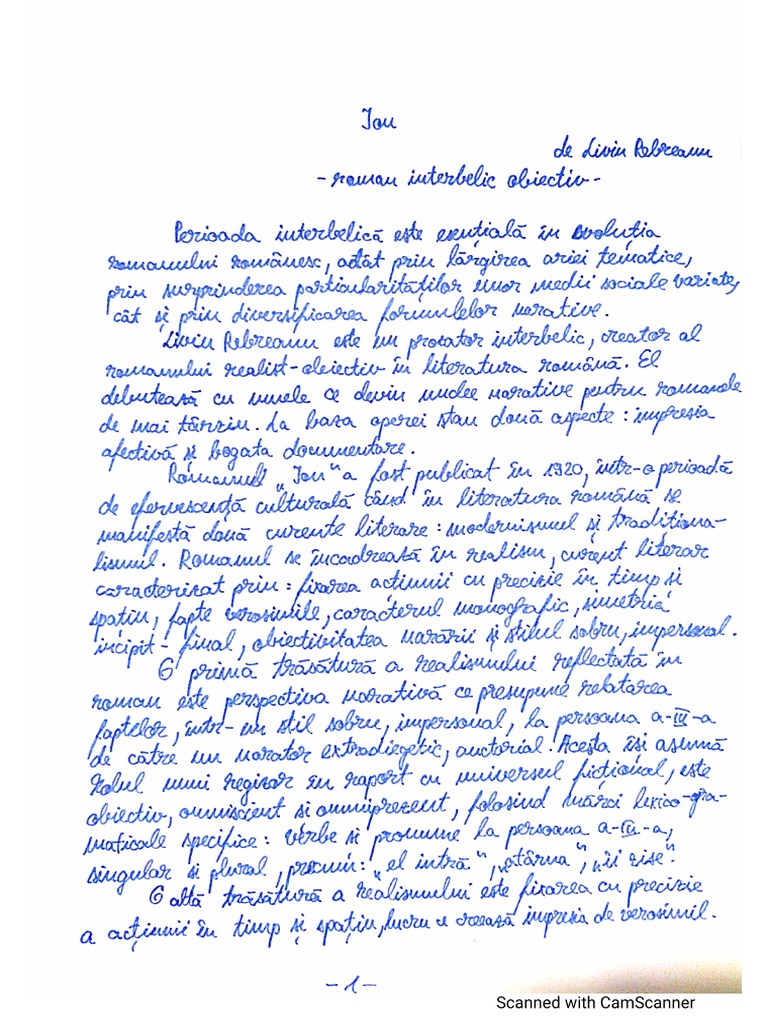 Ion
de Liviu Rebreanu
- roman interbelic obiectiv -
Perioada interbelică este esențială în evoluția
romanului românesc, atât prin lărgirea ariei tematice,
prin surprinderea particularităților unor medii sociale variate,
cât și prin diversificarea formulelor narative.
Liviu Rebreanu este un prozator interbelic, creator al
romanului realist-obiectiv în literatura română. El
debutează cu nuvele ce devin nuclee narative pentru romanele
de mai târziu. La baza operei stau două aspecte: impresia
afectivă și bogata documentare.
Romanul „Ion" a fost publicat în 1920, într-o perioadă
de efervescență culturală când în literatura română se
manifestă două curente literare: modernismul și tradiționa-
lismul. Romanul se încadrează în realism, curent literar
caracterizat prin: fixarea acțiunii cu precizie în timp si
spațiu, fapte verosimile, caracterul monografic, simetria
incipit - final, obiectivitatea narării și stilul sobru, impersonal.
O primă trăsătură a realismului reflectată în
roman este perspectiva narativă ce presupune relatarea
faptelor, într-un stil sobru, impersonal, la persoana a-III-a
de către un narator extradiegetic, auctorial. Acesta își asumă
rolul unui regizor în raport cu universul ficțional, este
obiectiv, omniscient si omniprezent, folosind mărci lexico-gra-
maticale specifice: verbe si pronume la persoana a-III-a,
singular si plural, precum: „el intră", „atârna", „îi zise".
O altă trăsătură a realismului este fixarea cu precizie
a acțiunii în timp și spațiu, lucru ce creează impresia de verosimil.
-1-
Scanned with CamScanner